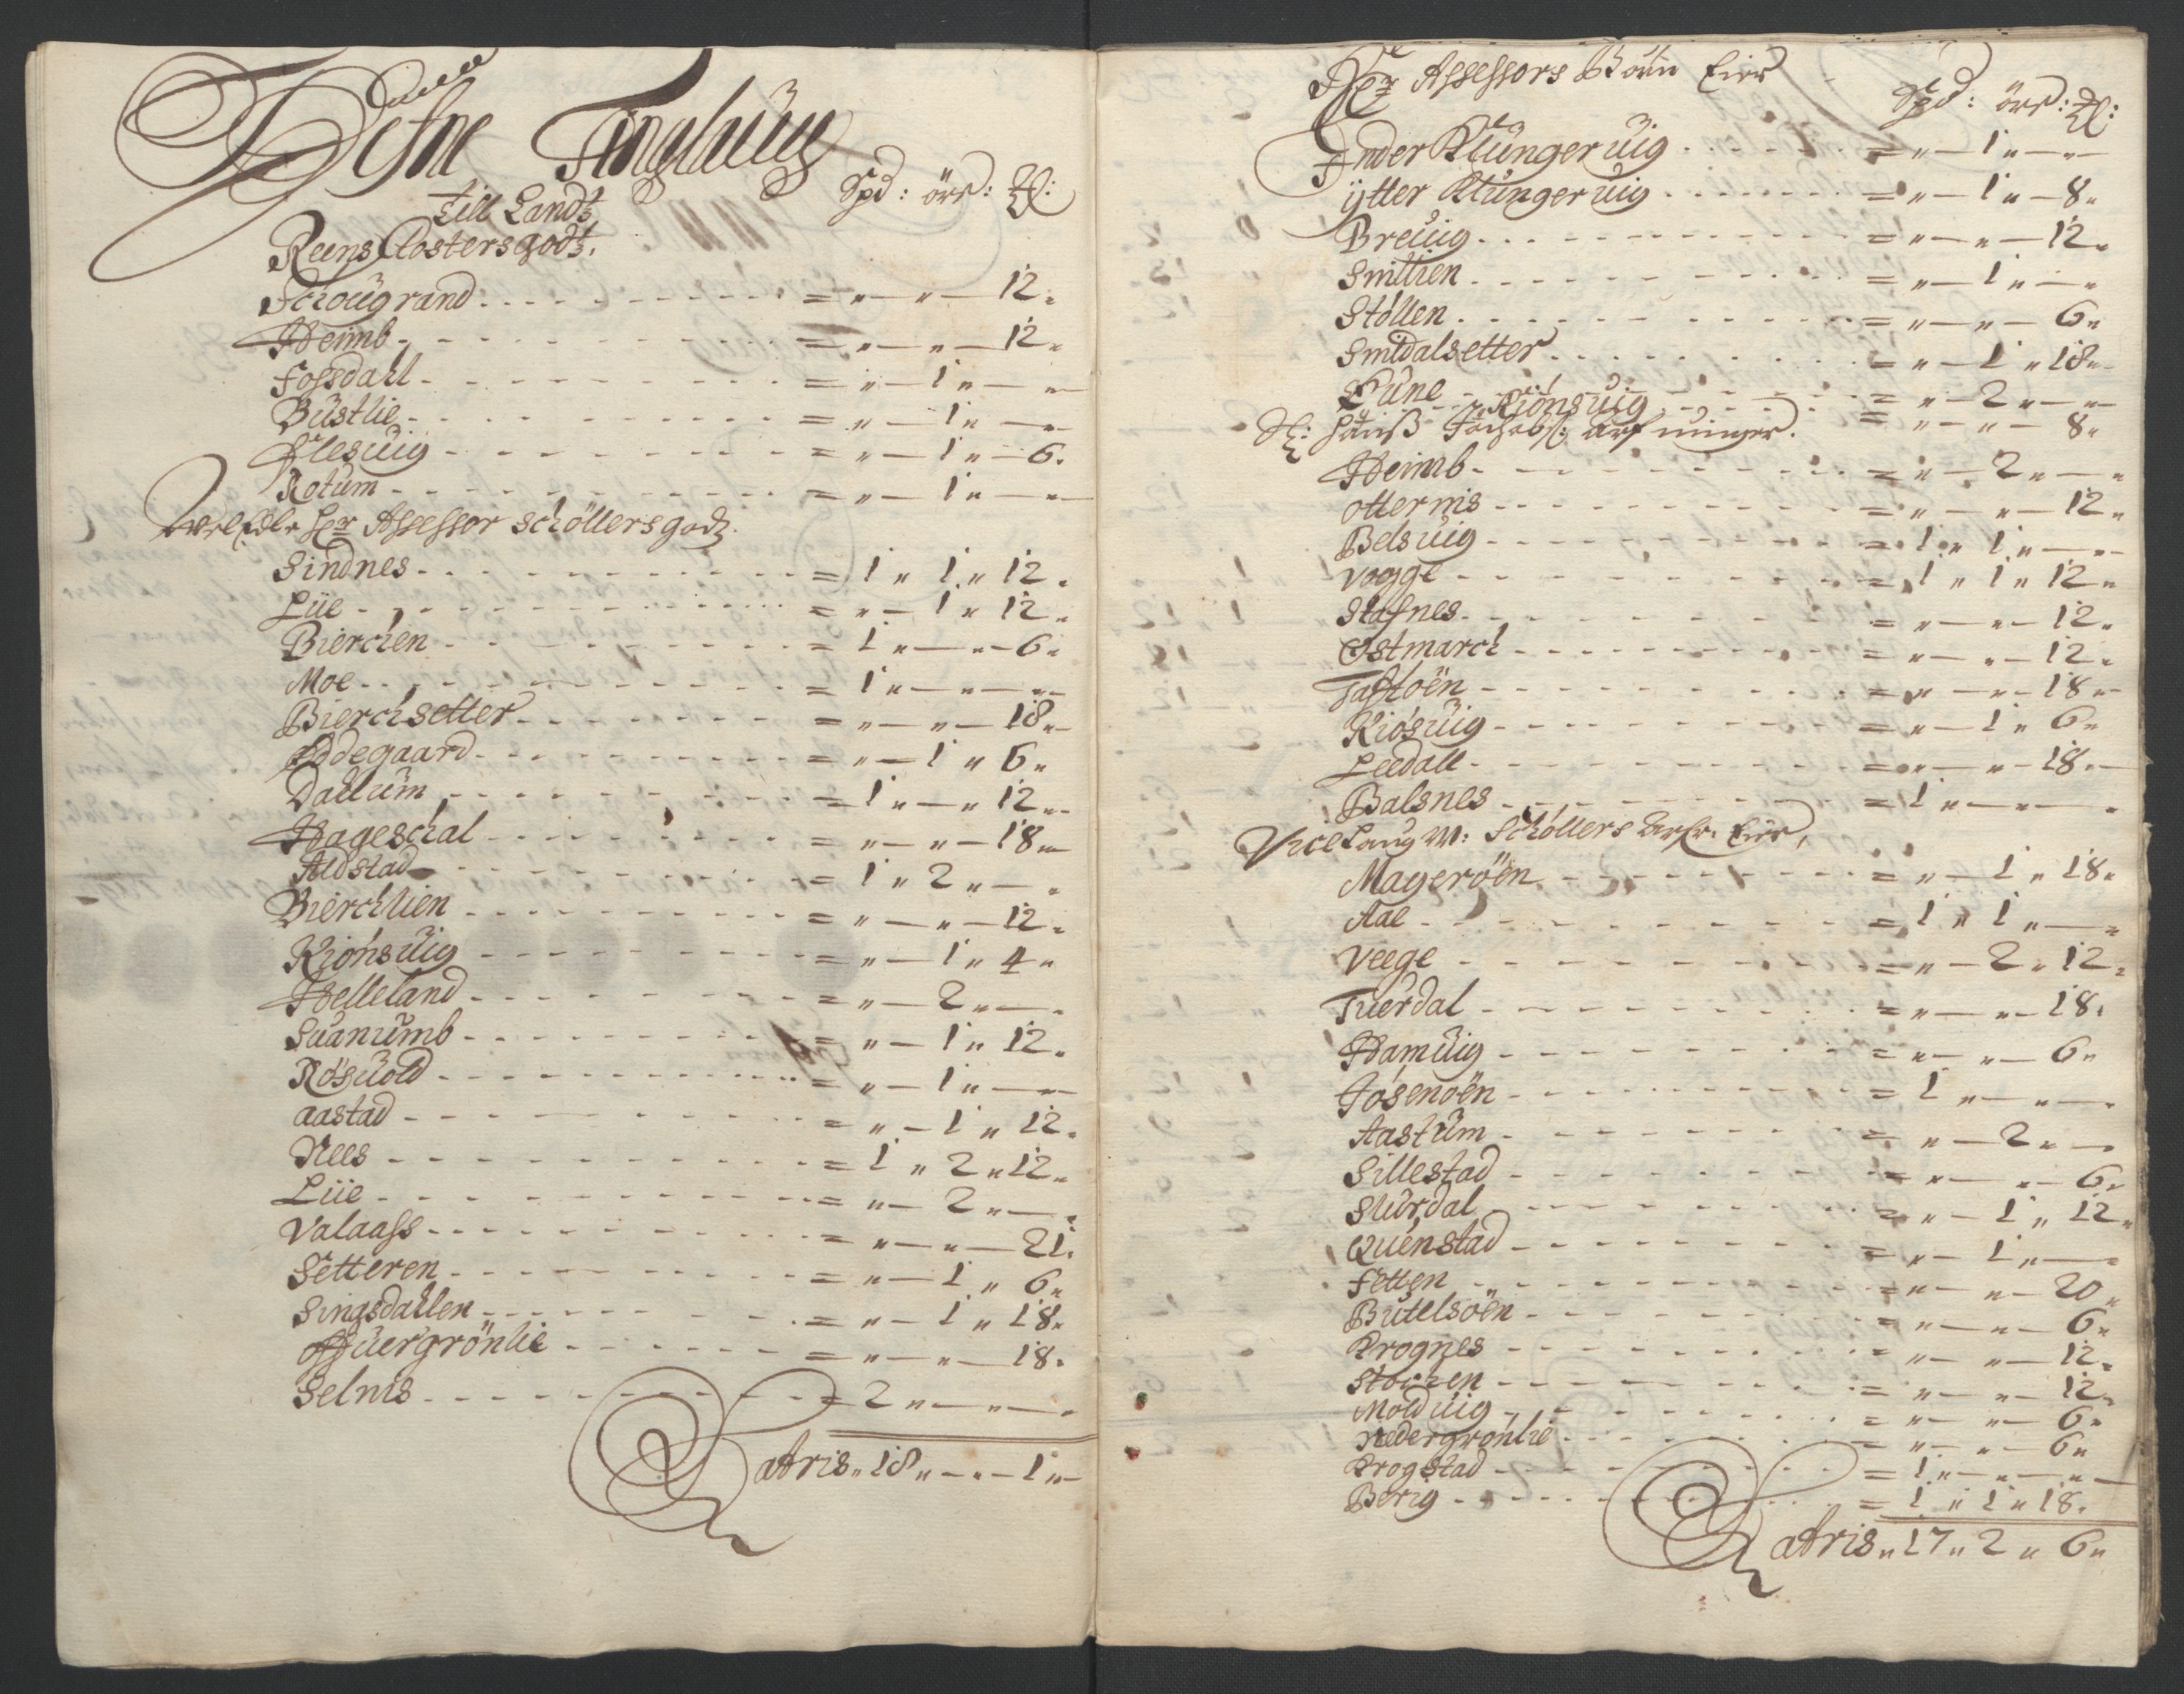 Hefne Tinglaug
Till Landtz Spd: örß: ℔:
Reens Closters godtz.
Schougrand - - - = „ — „ — 12 „
Heimb - - - = „ — „ — 12 „
Fossdahl - - - = „ — 1 „ — „
Büstlie - - - = „ — 1 „ — „
Flesuig - - - = „ — 1 „ — 6 „
Rotum - - - = „ — 1 „ — „
Welædle Hr Assessor Schöllers godtz
Sindnes - - - = 1 „ 1 „ 12 „
Liie - - - = „ — 1 „ 12 „
Bierchen - - - = 1 „ — „ — 6 „
Moe - - - = 1 „ — „ — „
Bierchsetter - - - = „ — „ — 18 „
Ödegaard - - - = „ — 1 „ 6 „
Dahlum - - - = 1 „ — „ 12 „
Hageschal - - - = „ — „ — 18 „
Aldstad - - - = 1 „ 2 „ — „
Bierchlien - - - = „ — „ — 12 „
Kiönsuig - - - = „ — 1 „ 4 „
Helleland - - - = „ — 2 „ — „
Suanumb - - - = „ — 1 „ 12 „
Rösuold - - - = „ — 1 „ — „
aastad - - - = „ — 1 „ 12 „
Nees - - - = 1 „ 2 „ 12 „
Liie - - - = „ — 2 „ — „
Valaass - - - = „ — „ — 21 „
Setteren - - - = „ — 1 „ 6 „
Singsdahlen - - - = „ — 1 „ 18 „
Offuergrönlie - - - = „ — „ — 18 „
Selnis - - - = 2 „ — „ — „
Latris „ 18 „ — „ — 1 „
Hr Assessors Börn Eier
Spd: örß: ℔:
Inder Klungeruig - - - = „ — 1 „ — „
ÿtter Klungeruig - - - = „ — 1 „ — 8 „
Breuig - - - = „ — „ — 12 „
Smillien - - - = „ — 1 „ — „
Stöllen - - - = „ — „ — 6 „
Smldalsetter - - - = „ — 1 „ 18 „
Eune - - - = „ — 2 „ — „
Kiönsuig - - - = „ — „ — 8 „
Sl: Hanß Jachobß: arfuinger.
Heimb - - - = „ — 2 „ — „
otternis - - - = „ — „ — 12 „
Belsuig - - - = 1 „ 1 „ — „
Vagge - - - = 1 „ 1 „ 12 „
Stafnes - - - = „ — „ — 12 „
Ostmarch - - - = „ — „ — 12 „
Taftöen - - - = „ — „ — 18 „
Kiösuig - - - = „ — 1 „ 6 „
Leedall - - - = „ — „ — 18 „
Balsnes - - - = 1 „ — „ — „
Vice Laug M: Schöllers Arfr: Eier,
Mageröen - - - = „ — 1 „ 18 „
Aae - - - = 1 „ 1 „ — „
Veege - - - = „ — 2 „ 12 „
Tuerdal - - - = „ — „ — 18 „
Hamuig - - - = „ — „ — 6 „
Jösenöen - - - = 1 „ — „ — „
Aastum - - - = „ — 2 „ — „
Sillestad - - - = „ — „ — 6 „
Slurdal - - - = „ — 1 „ 12 „
Quenstad - - - = „ — 1 „ — „
Fetten - - - = „ — „ — 20 „
Butelsöen - - - = „ — „ — 6 „
Krognes - - - = „ — „ — 12 „
Stöchen - - - = „ — „ — 12 „
Molduig - - - = „ — „ — 6 „
Nedergrönlie - - - = „ — „ — 6 „
Krogstad - - - = 1 „ — „ — „
Berig - - - = 1 „ 1 „ 18 „
Latris „ 17 „ 2 „ 6 „